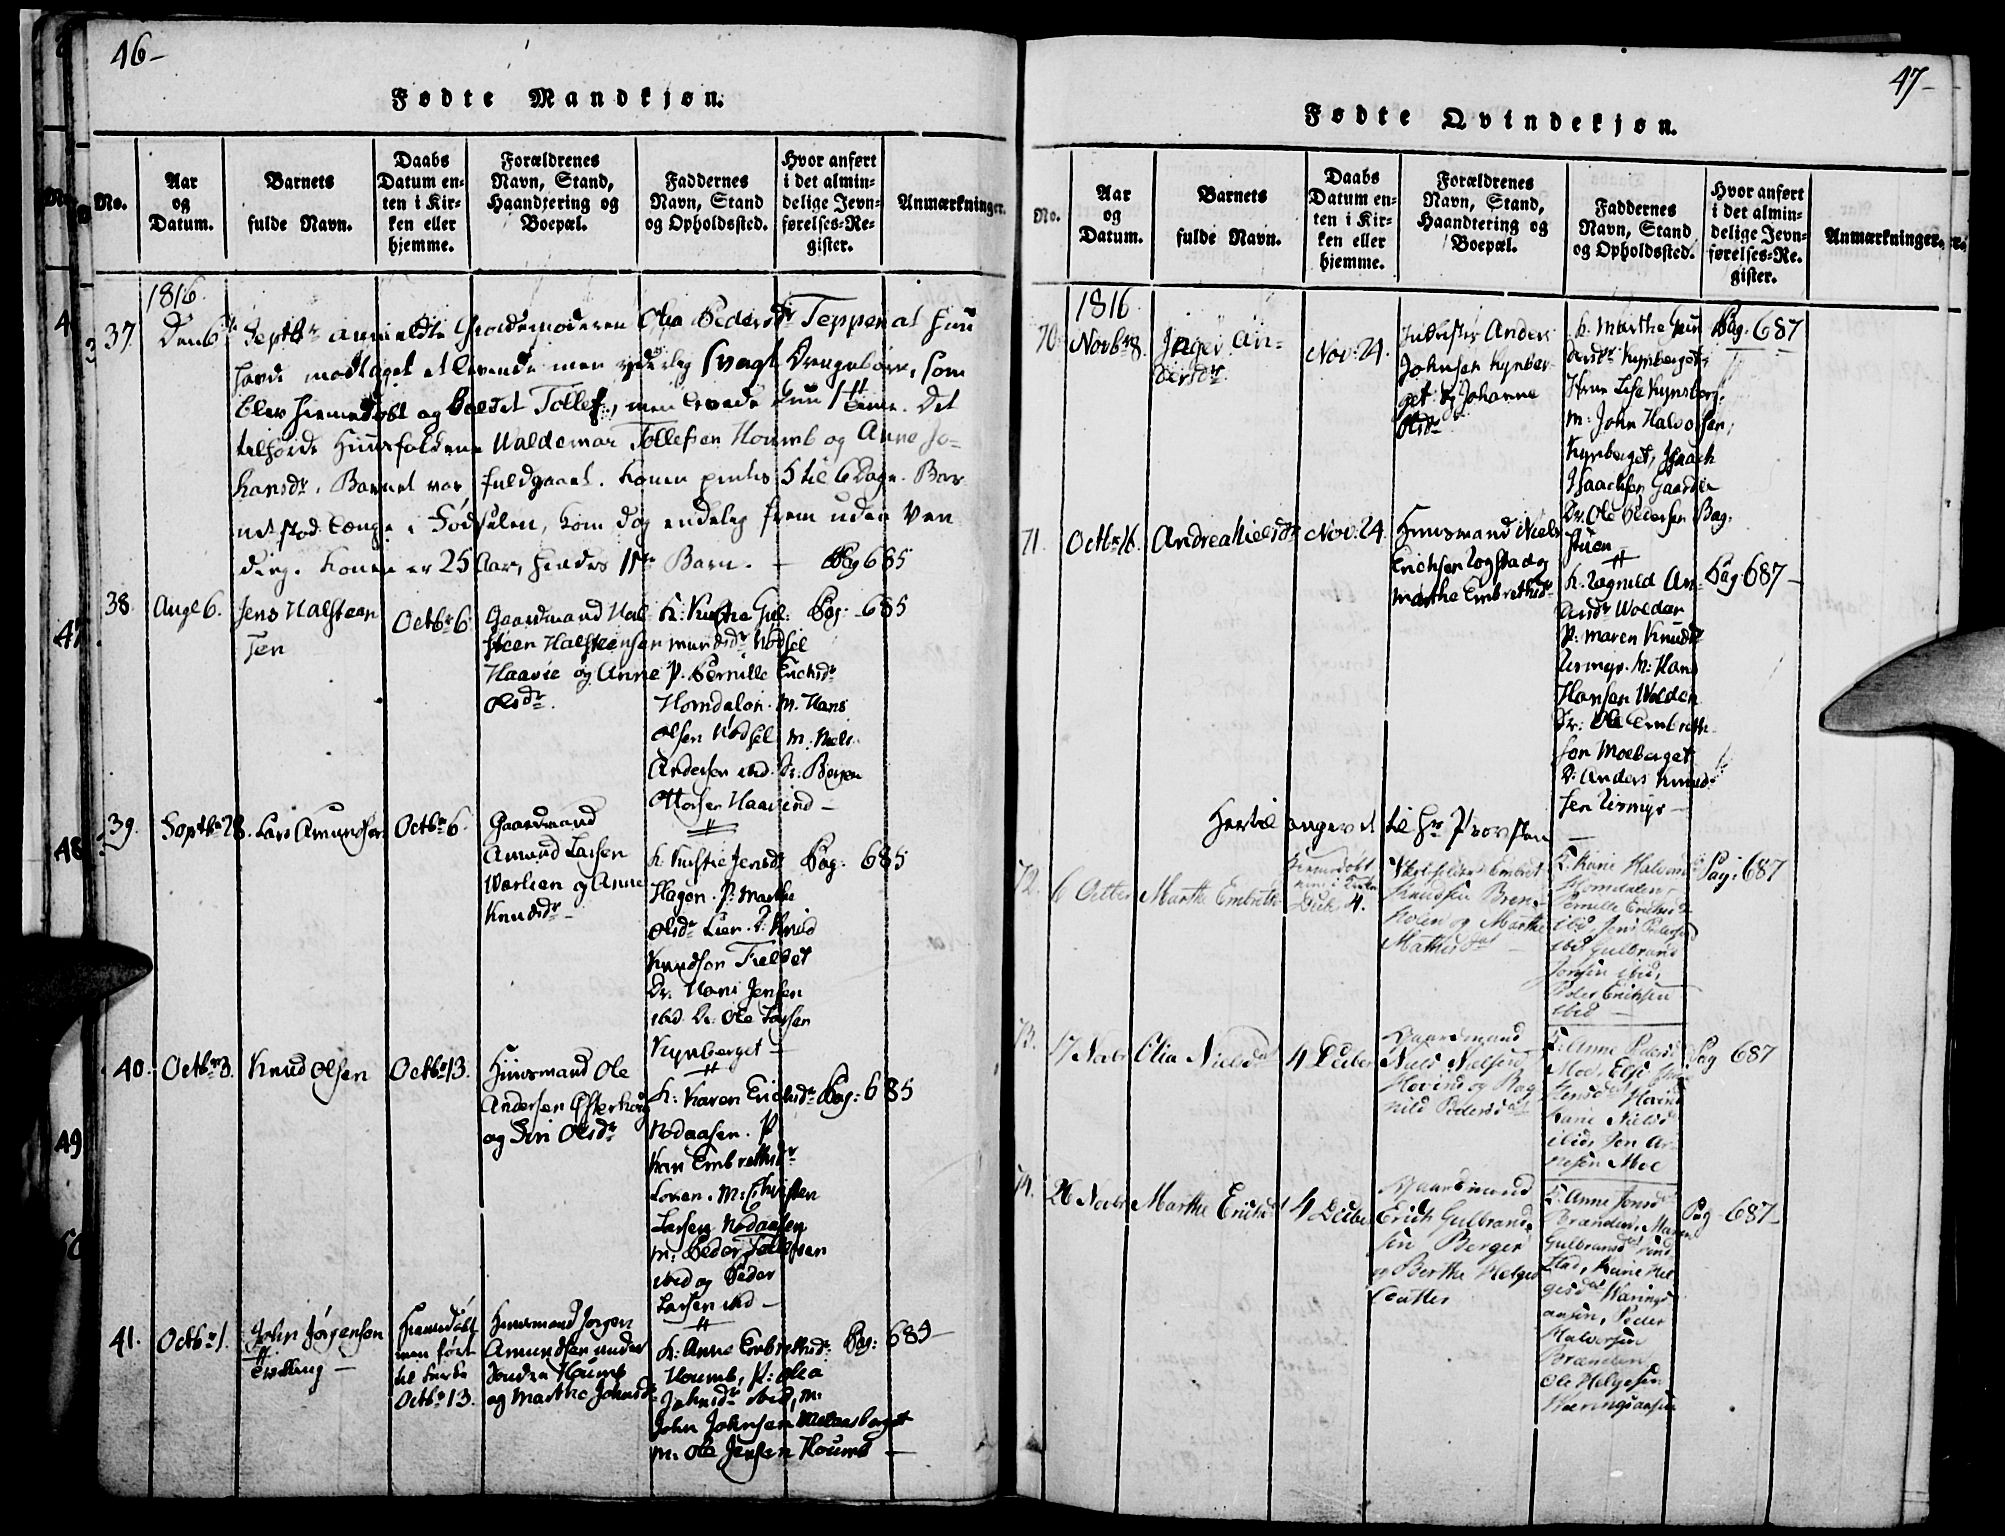 46-
Fødte Mandkjøn.
No.
Aar
og
Datum.
Barnets
fulde Navn.
Daabs
Datum en-
ten i Kir-
ken eller
hjemme.
Forældrenes
Navn, Stand,
Haandtering og
Boepæl.
Faddernes
Navn, Stand
og Opholdssted.
Hvor anført
i det almin-
delige Jevn-
førelses-Re-
gister.
Anmærkninger.
1816.
37. Den 6te Septbr anmeldte Giordemoderen Olia Pedersdr Teppen at hun
havde modtaget et levende men yderlig svagt Drengebørn, som
blev hiemedøbt og kaldet Tollef, men levede kun 1 Time. Det
tilhørde Huusfolkene Waldemar Tollefsen Houmb og Anne Jo-
hansdr. Barnet var fuldgaaet. Konen 5 til 6 Dage. Bar-
net stod længe i Fødselen, kom dog endelig frem uden Ven-
ding. Konen er 25 Aar, hendes 1ste Barn. - Pag 685
38. Aug 26. Jens Halsteen
sen
Octbr 6
Gaardmand Hal-
steen Halsteensen
Haavie og Anne
Olsdr.
K: Kirstie Gul-
mundsdr Nodsel
P. Pernille Erichsdr
Homdalen. M. Hans
Olsen Nodsel M. Niels
Andersen ibid. Dr. Børger
Ottersen Haavind -
Pag: 685
39. Septbr 28. Lars Amundsen Octbr 6.
Gaardmand
Amund Larsen
Warlien og Anne
Knudsdr -
K. Kirstie Jensdr
Hagen. P. Marthe
Olsdr Lier. D: Knud
Knudsen Fieldet
Dr. Hans Jensen
ibid. Dr: Ole Larsen
Kynberget -
Pag: 685
40. Octbr 3. Knud Olsen Octbr 13.
Huusmand Ole
Andersen Østerhoug
og Siri Olsdr
K: Karen Erichsdr
Nodaasen. P
Kari Embrethsdr
Loren. M: Christen
Larsen Nodaasen
M: Peder Tollefsen
ibid og Peder
Larsen ibid -
Pag: 685
41. Octbr 1. John Jørgensen
Tvilling -
Hiemedøbt
men ført
til Kirke
Octbr 13.
Huusmand Jørgen
Amundsen under
Søndre Houmb
og Marthe Johnsdr
K: Anne Embrethsdr
Houmb, P: Olea
Johnsdr ibid, M:
John Johnsen
M. Ole Jensen Houmb -
Pag: 685-
47-
Fødte Qvindekjøn.
No.
Aar
og
Datum.
Barnets
fulde Navn.
Daabs
Datum en-
ten i Kir-
ken eller
hjemme.
Forældrenes
Navn, Stand,
Haandtering og
Boepæl.
Faddernes
Navn, Stand
og Opholdssted.
Hvor anført
i det almin-
delige Jevn-
førelses-Re-
gister.
Anmærkninger.
1816
70. Novbr 8. Inger An-
dersdr
Nov: 24.
Inderster Anders
Johnsen Kynber-
get og Johanne
Olsdr
K. Marthe Gun-
dersdr Kynberget,
Lise Kynsberg.
M. John Halvorsen,
Kynberget, Isaach
Isaachsen Gaarder
Dr. Ole Pedersen Bag-
stuen
Pag. 687
71. Octbr 16. Andrea Nielsdr Nov: 24.
Huusmand Niels
Erichsen Rogstad og
Marthe Embrethsdr
K. Ragnild An-
dersdr Wolden
P. Maren Knudsdr
Rismyr. M: Hans
Hansen Wolden
Dr: Ole Embreth-
sen Moeberget
D: Anders Knud-
sen Rismyr -
Pag 687-
Hertil angivet til Hr Provsten
72. 6 Octbr Marthe Embrethsd
Hiemmedøbt
Decbr 4.
Embret
Knudsen Bren-
holen og Marthe
Mathisdat
K: Karie Halvorsd
Homdalen,
Pernille Eriksd
ibid, Jens Pedersen
ibid Gulbrand
Jonsen ibid,
Peder Eriksen
ibid -
Pag: 687
73. 17 Novbr Olia Nielsdat 4 Decber
Gaardmand
Niels Nielsen
Hovind og Rag-
nild Pedersdat
K: Anne Pedersd
Moe, Elsi
Hovind
Karie Nielsd
ibid, Jon Ar-
nesen Moe
Pag 687
74. 26 Novbr Marthe Erichsd 4 Decber
Gaardmand
Erich Gulbrand-
sen Berger
og Berthe Helges-
datter
K: Anne Jonsd
Brænden, Maren
Gulbrandsdat Rind-
stad, Karie Hel-
gesdat Wærings-
aasen, Peder
Halvorsen
Brænden
Ole Helgesen
Wæringsaasen
Pag -687-